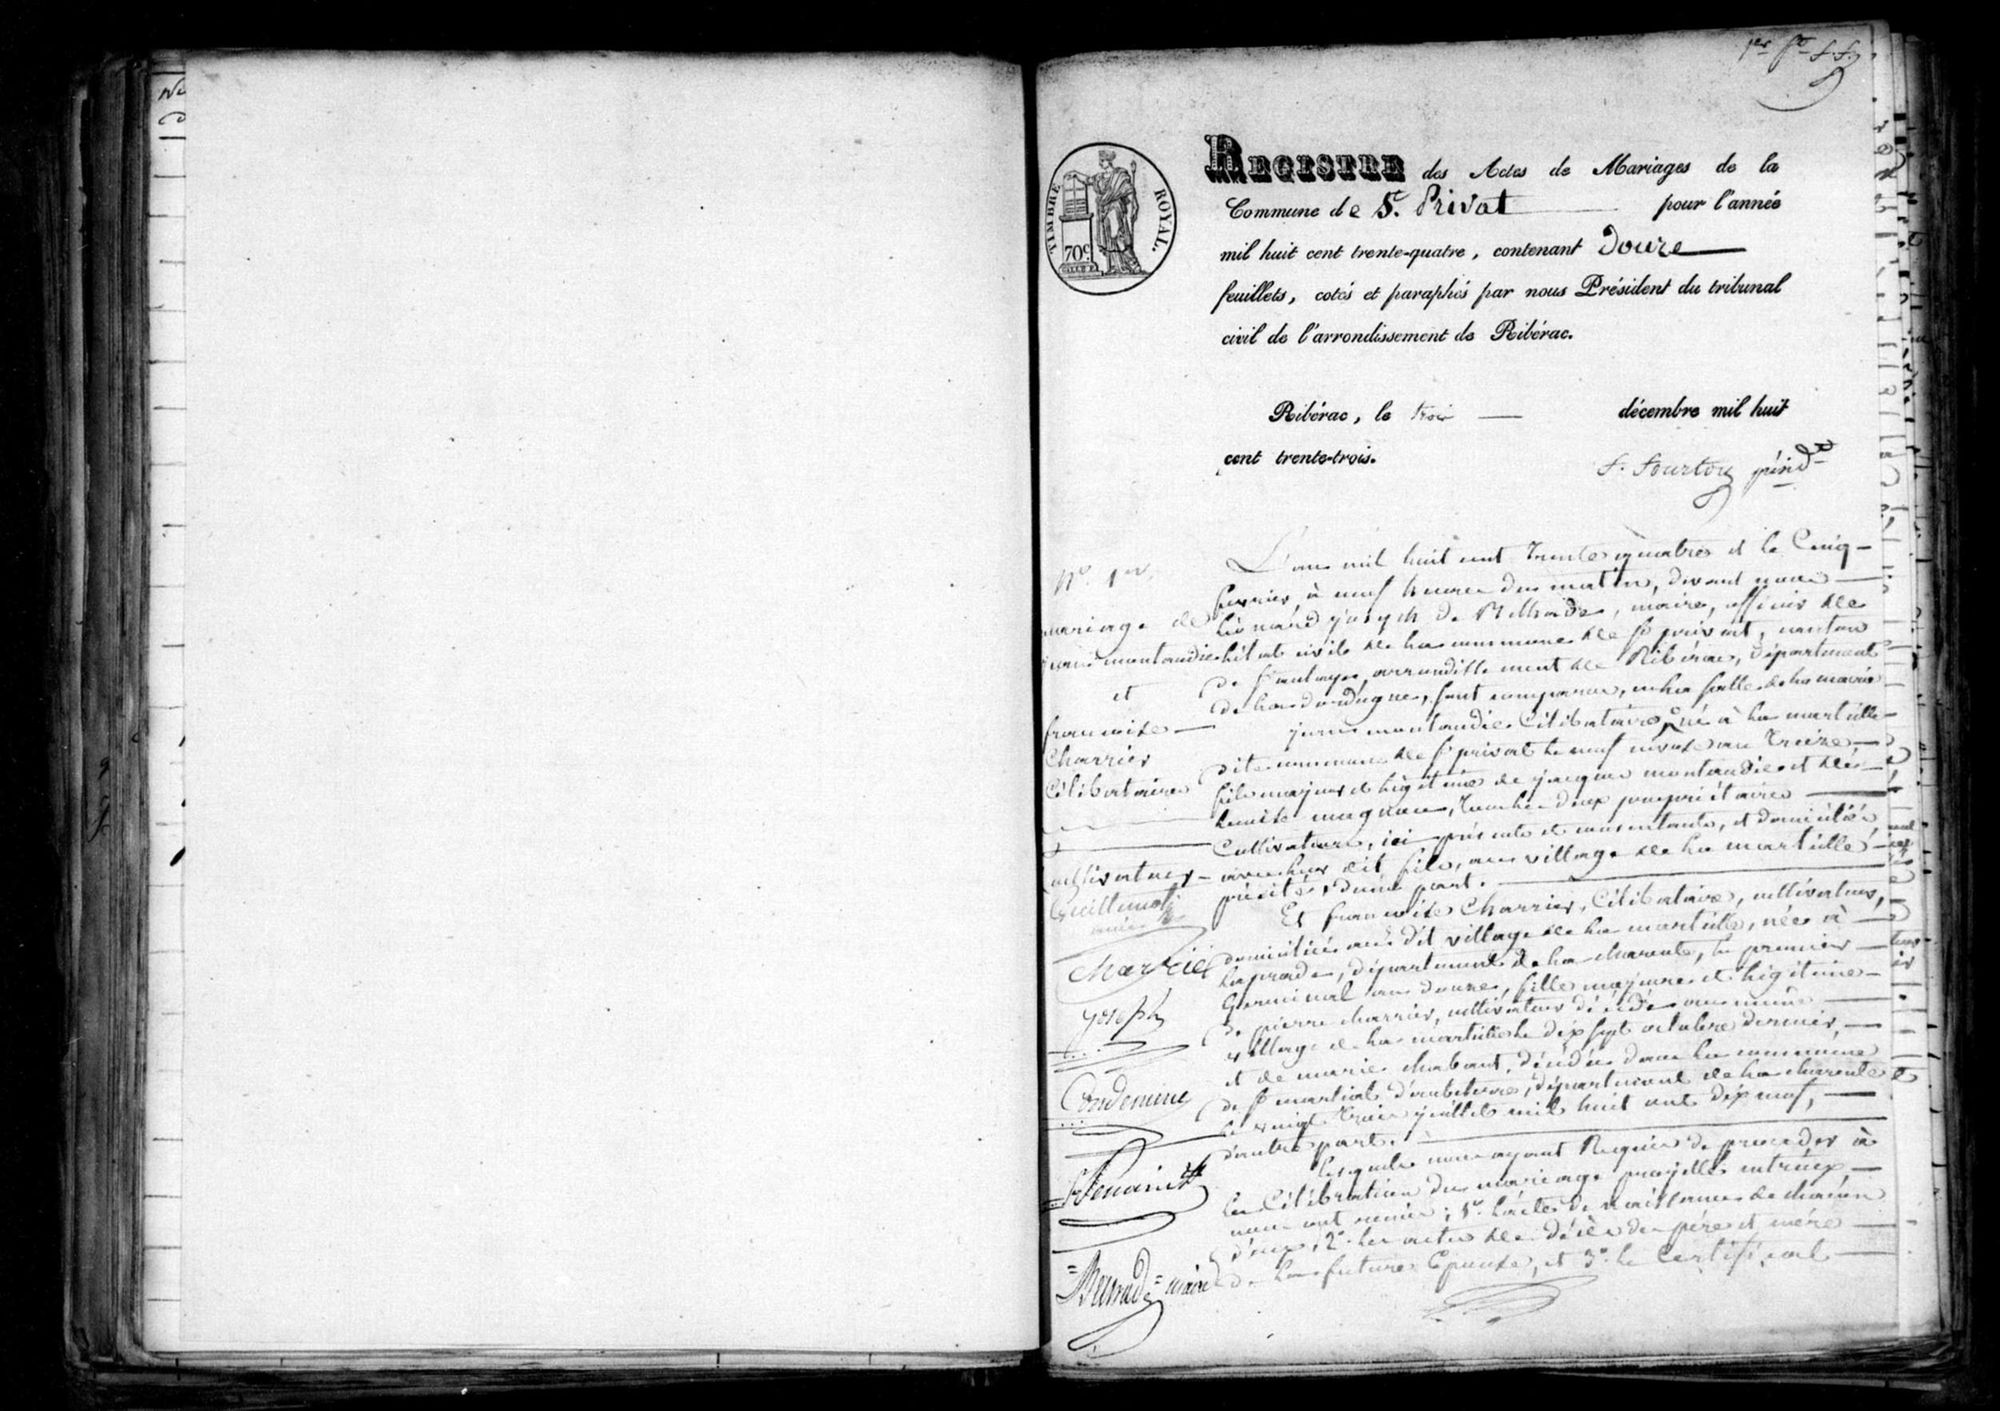 1er fo f.f.
TIMBRE ROYAL.
70c
REGISTRE des Actes de Mariages de la
Commune de St. Privat pour l'année
mil huit cent trente-quatre, contenant Douze
feuillets, cotés et paraphés par nous Président du tribunal
civil de l'arrondissement de Ribérac.
Ribérac, le trois décembre mil huit
cent trente-trois.
No. 1er.
mariage de
montaudie
et
francoise
Charrier
Célibataires
Cultivateurs
L'an mil huit cent Trente quatre et le Cinq
fevrier à neuf heures du matin, devant nous
Léonard joseph de , maire, officier de
l'état civile de la commune de St privat, canton
de St aulaye, arrondissement de Ribérac, département
de la dordogne, sont comparus, en la salle de la mairie
montaudie Célibataire, né à la martille
dite commune de St privat le neuf nivose an Treize
fils majeur et légitime de jacques montaudie et de
Louise magnan, Tous les deux propriétaires
Cultivateurs, ici présents et consentants, et domiciliés
avec leur dit fils, au village de la martille
précité, d'une part.
Et francoise Charrier, Célibataire, cultivateur,
domiciliée au dit village de la martille, née à
laprade, département de la charente, le premier
Germinal an douze, fille majeure et légitime
de pierre charrier, cultivateur décédé au même
village de la martille le dix sept octobre dernier,
et de marie chabant, décédée dans la commune
de St martial d'aubeterre, département de la charente
le vingt Trois juillet mil huit cent dix neuf,
d'autre part.
Lesquels nous ayant Requis de proceder à
la Célébration du mariage projetté entr'eux
nous ont remis; 1o. l'acte de naissance de chacun
d'eux; 2o. les actes de décès des père et mère
de la future Epouse, et 3o. le Certificat
Charrier
joseph
Condemine
maire